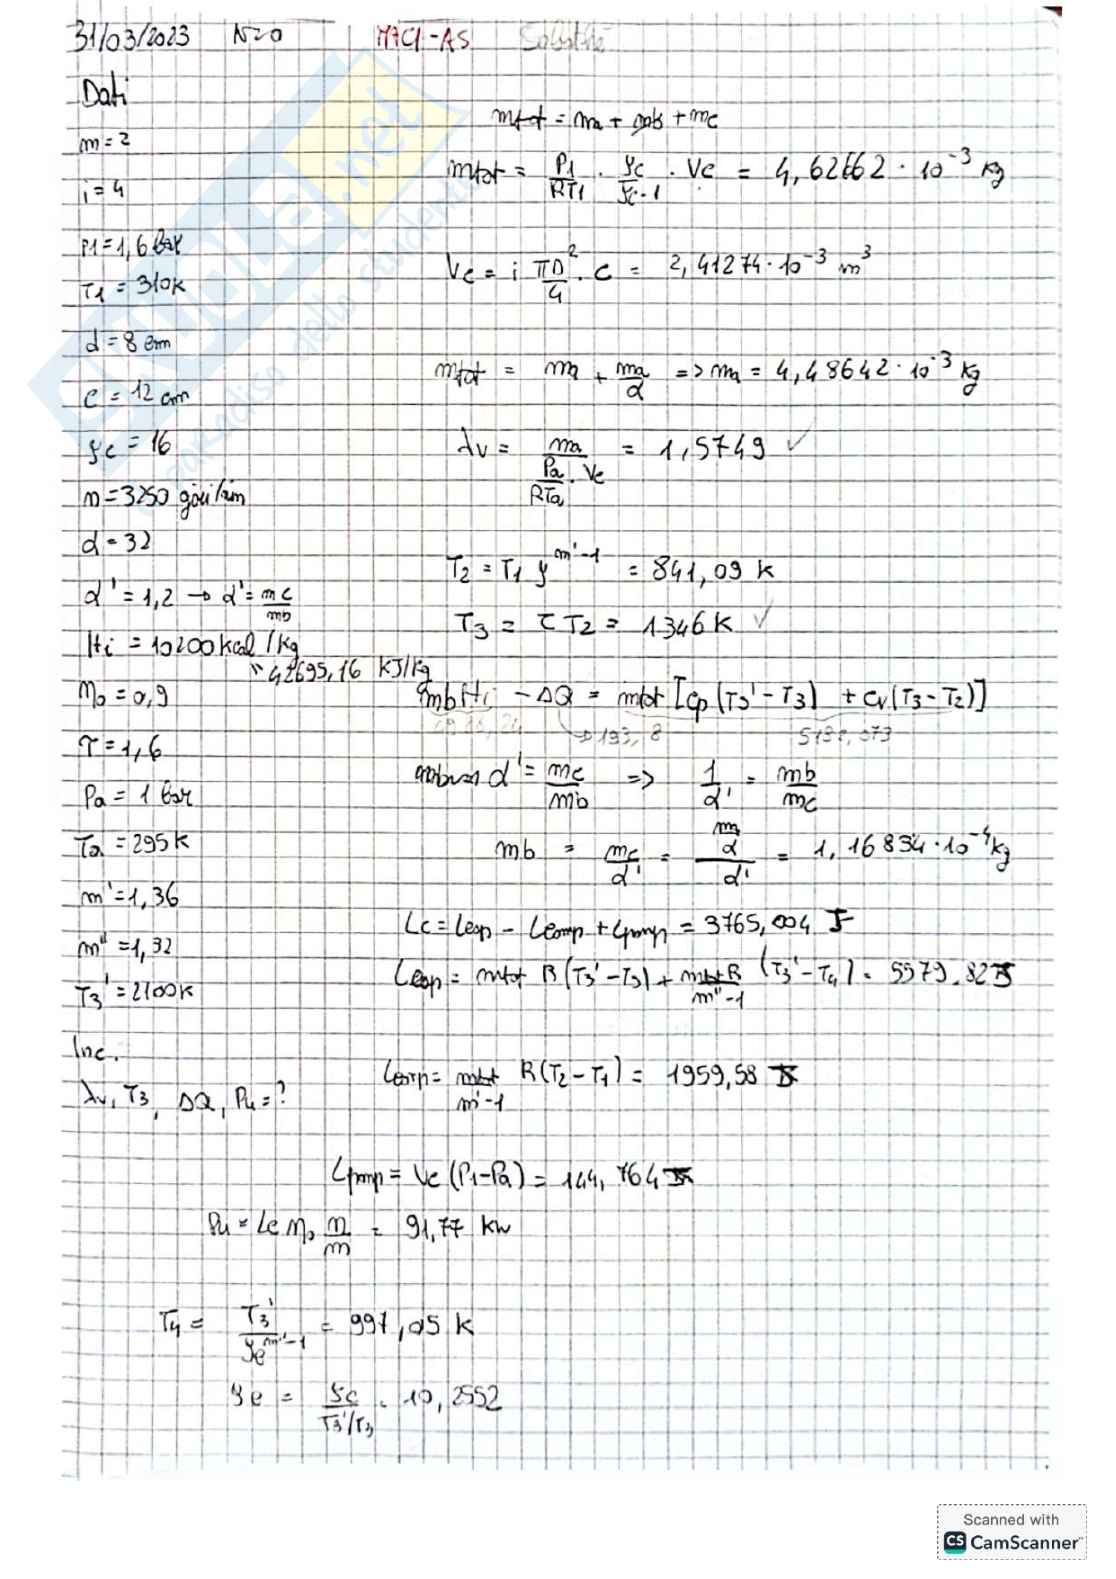 31/03/2023 N20 MACI-AS
Dati
m = 2
i = 4
P1 = 1,6 bar
T1 = 310k
d = 8 cm
c = 12 cm
ρc = 16
n = 3250 giri/min
α = 32
α' = 1,2 → α' = mc/mb
Hi = 10200 kcal/kg
42695,16 kJ/kg
η0 = 0,9
τ = 1,6
Pa = 1 bar
Ta = 295k
m' = 1,36
m'' = 1,32
T3' = 2100k
Inc.
λv, T3, ΔQ, Pu = ?
mtot = ma + mb + mc
mtot = P1/RT1 · ρc/ρc-1 · Vc = 4,62662 · 10⁻³ kg
Vc = i πD²/4 · c = 2,41274 · 10⁻³ m³
mtot = ma + ma/α => ma = 4,48642 · 10⁻³ kg
λv = ma / Pa/RTa · Vc = 1,5749 ✓
T2 = T1 ρ^m'-1 = 841,09 k
T3 = τ T2 = 1346k ✓
mb Hi - ΔQ = mtot [cp (T3' - T3) + cv (T3 - T2)]
→ 193,8
α' = mc/mb => 1/α' = mb/mc
mb = mc/α' = ma/α / α' = 1,16834 · 10⁻⁴ kg
Lc = Lesp - Lcomp + Lpomp = 3765,004 J
Lesp = mtot R (T3' - T3) + mtot R/m''-1 (T3' - T4) = 5579.82 J
Lcomp = mtot/m'-1 R (T2 - T1) = 1959,58 J
Lpomp = Vc (P1 - Pa) = 144,764 J
Pu = Lc η0 n/m = 91,77 kw
T4 = T3'/ρe^m''-1 = 997,05 k
ρe = ρc/T3'/T3 = 10,2552
Scanned with
CS CamScanner